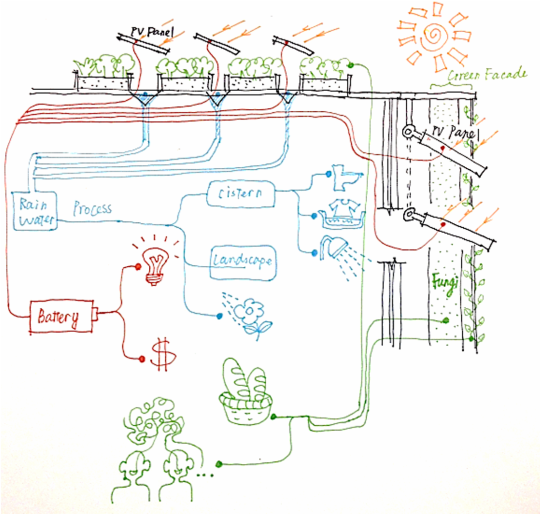 PV Panel
Green Facade
PV Panel
Rain
Water
Process
Cistern
Landscape
Fungi
Battery
$
...